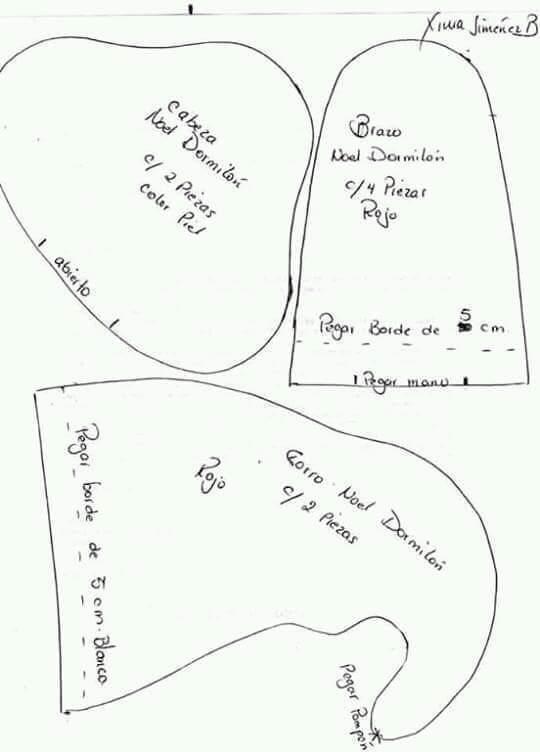 Ximia Jiménez B
Cabeza
Noel Dormilón
c/ 2 Piezas
color Piel
abierto
Brazo
Noel Dormilón
c/4 Piezas
Rojo
Pegar Borde de 5 cm
Pegar mano
Gorro Noel Dormilón
c/ 2 Piezas
Rojo
Pegar borde de 5 cm. Blanca
Pegar Pompon